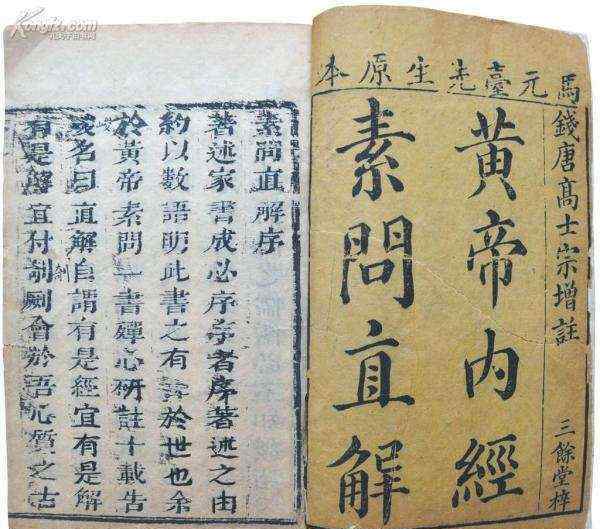 元臺先生原本
馬錢唐高士宗增註
黃帝內經
素問直解
三餘堂梓
素問直解序
著述家書成必序序者序著述之由
約以數語明此書之有益於世也余
於黃帝素問一書殫心研註十載告
成名曰直解自謂有是經宜有是解
有是解宜付剞劂會於吾心質之古
Kongfz.com
孔夫子旧书网